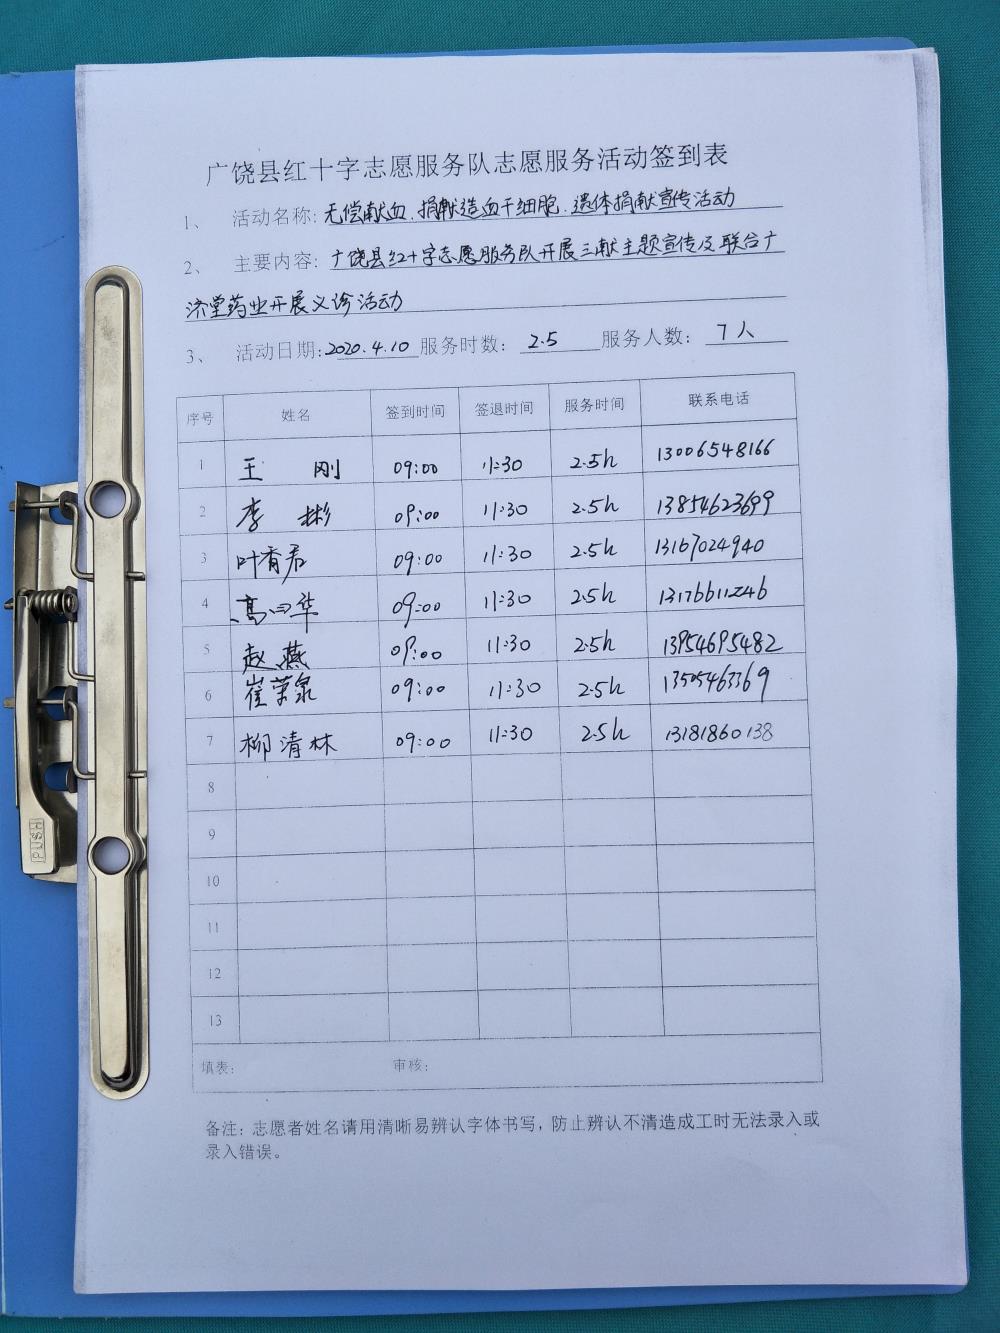 广饶县红十字志愿服务队志愿服务活动签到表
1、 活动名称: 无偿献血、捐献造血干细胞、遗体捐献宣传活动
2、 主要内容: 广饶县红十字志愿服务队开展三献主题宣传及联合广
济堂药业开展义诊活动
3、 活动日期: 2020.4.10 服务时数: 2.5 服务人数: 7人
序号 姓名 签到时间 签退时间 服务时间 联系电话
1 王刚 09:00 11:30 2.5h 13006548166
2 李彬 09:00 11:30 2.5h 13854623699
3 叶香君 09:00 11:30 2.5h 13167024940
4 高 华 09:00 11:30 2.5h 13176611246
5 赵燕 09:00 11:30 2.5h 13954695482
6 崔荣泉 09:00 11:30 2.5h 13505463369
7 柳清林 09:00 11:30 2.5h 13181860138
8
9
10
11
12
13
填表: 审核:
备注: 志愿者姓名请用清晰易辨认字体书写，防止辨认不清造成工时无法录入或
录入错误。
PUSH